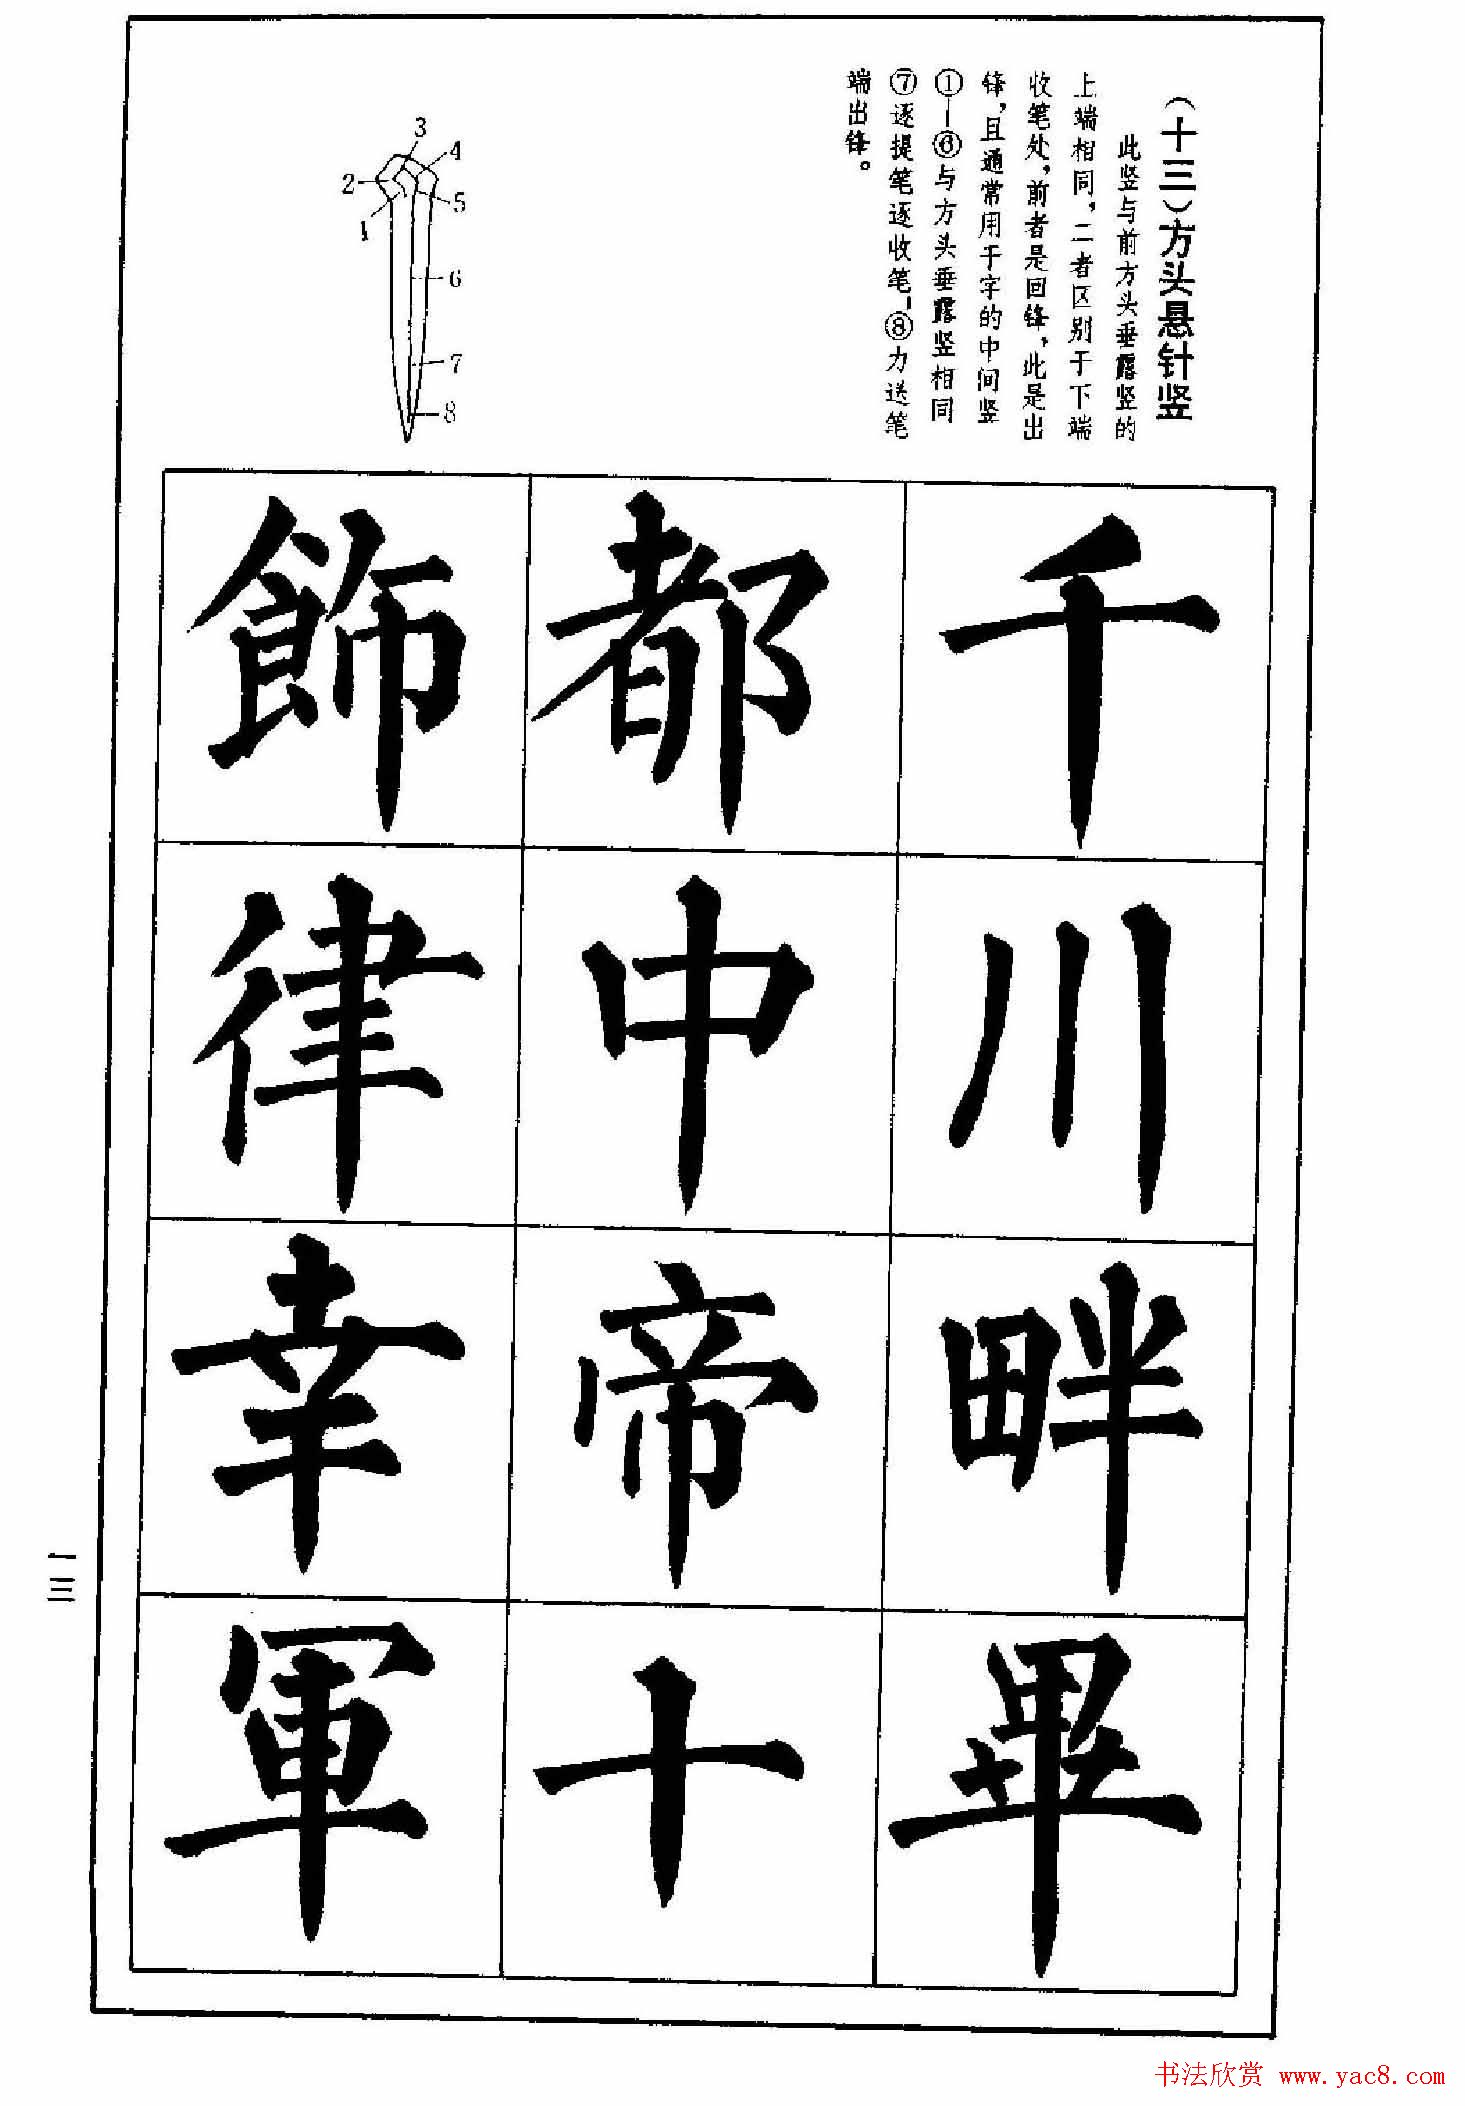 （十三）方头悬针竖
此竖与前方头垂露竖的
上端相同，二者区别于下端
收笔处，前者是回锋，此是出
锋，且通常用于字的中间竖
①—⑥与方头垂露竖相同
⑦逐提笔逐收笔—⑧力送笔
端出锋。
3
4
2
5
1
6
7
8
千
川
畔
畢
都
中
帝
十
飾
律
幸
軍
一三
书法欣赏 www.yac8.com